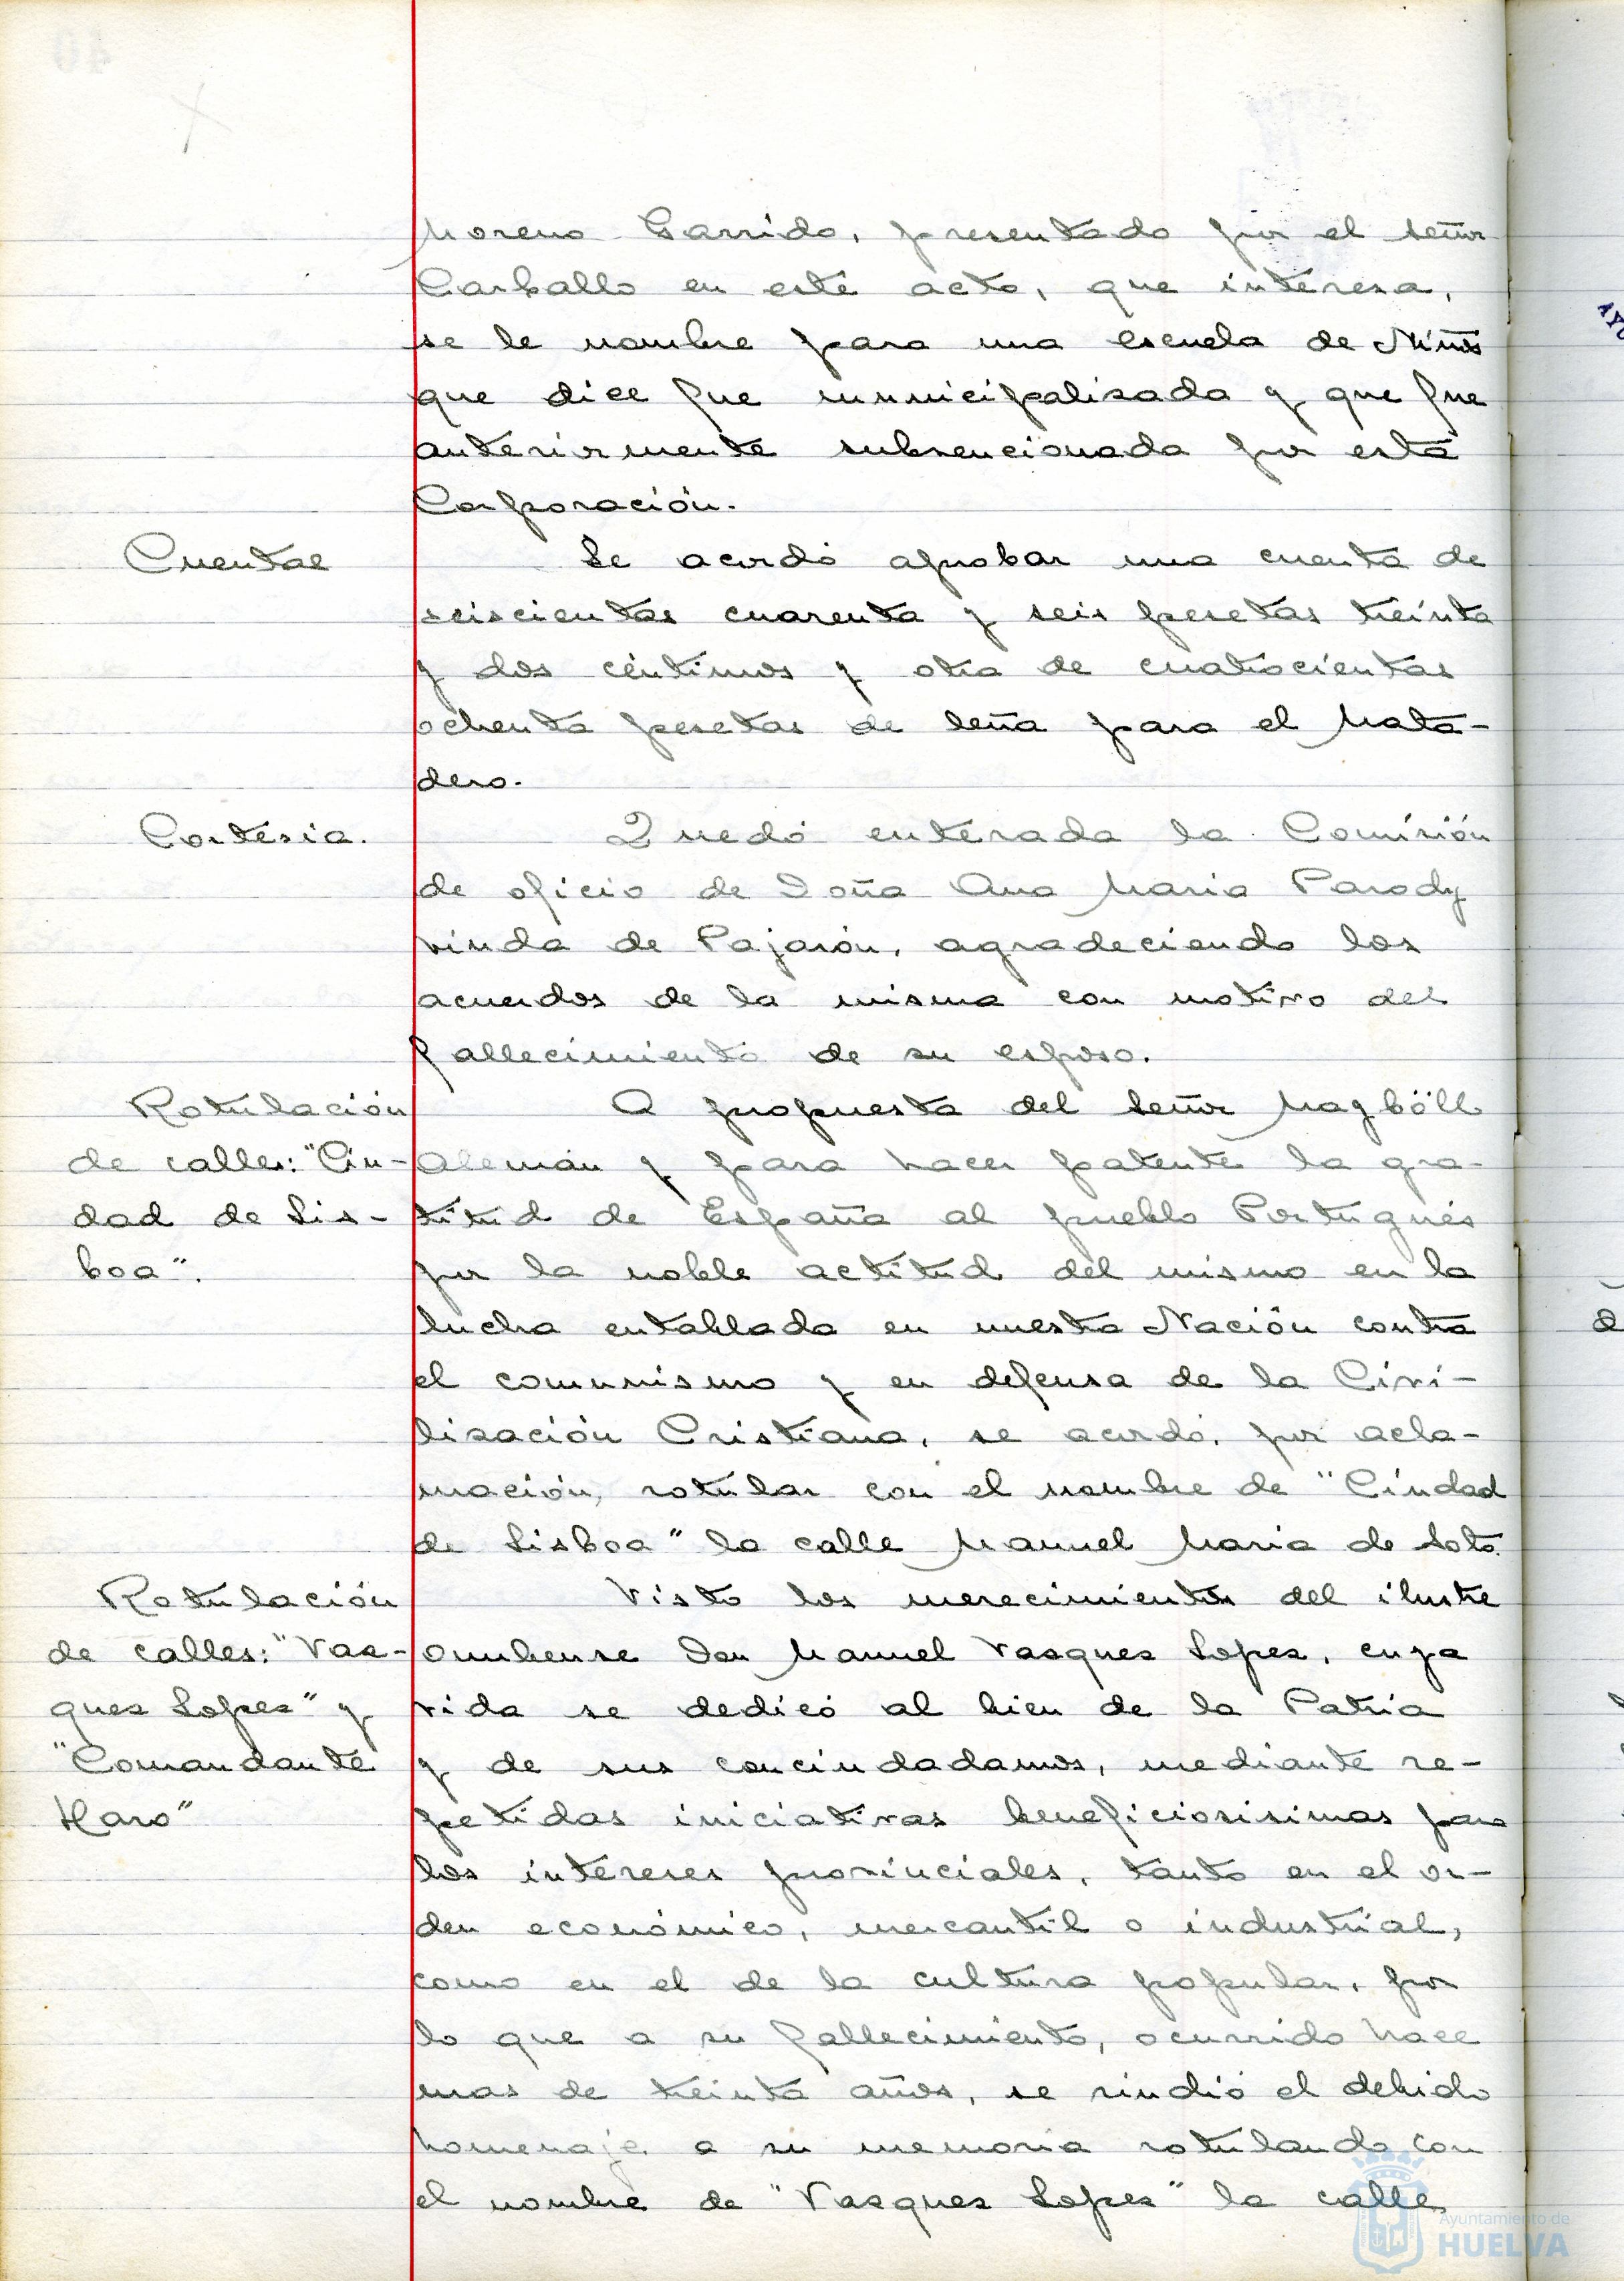 Moreno Garrido, presentado por el señor
Carballo en este acto, que interesa,
se le nombre para una escuela de Niños
que dice fue municipalizada y que fue
anteriormente subvencionada por esta
Corporación.
Cuentas
Se acordó aprobar una cuenta de
seiscientas cuarenta y seis pesetas treinta
y dos céntimos y otra de cuatrocientas
ochenta pesetas de leña para el Mata-
dero.
Cortesía.
Quedó enterada la Comisión
de oficio de Doña Ana Maria Parody
viuda de Pajarón, agradeciendo los
acuerdos de la misma con motivo del
fallecimiento de su esposo.
Rotulación
de calles: "Ciu-
dad de Lis-
boa".
A propuesta del señor Magböll
Alemán y para hacer patente la gra-
titud de España al pueblo Portugués
por la noble actitud del mismo en la
lucha entablada en nuestra Nación contra
el comunismo y en defensa de la Civi-
lización Cristiana, se acordó, por acla-
mación, rotular con el nombre de "Ciudad
de Lisboa" la calle Manuel Maria de Soto.
Rotulación
de calles: "Vaz-
quez Lopez" y
"Comandante
Haro"
Visto los merecimientos del ilustre
onubense Don Manuel Vazquez Lopez, cuya
vida se dedicó al bien de la Patria
y de sus conciudadanos, mediante re-
petidas iniciativas beneficiosisimas para
los intereses provinciales, tanto en el or-
den económico, mercantil o industrial,
como en el de la cultura popular, por
lo que a su fallecimiento, ocurrido hace
mas de treinta años, se rindió el debido
homenaje a su memoria rotulando con
el nombre de "Vazquez Lopez" la calle
Ayuntamiento de
HUELVA